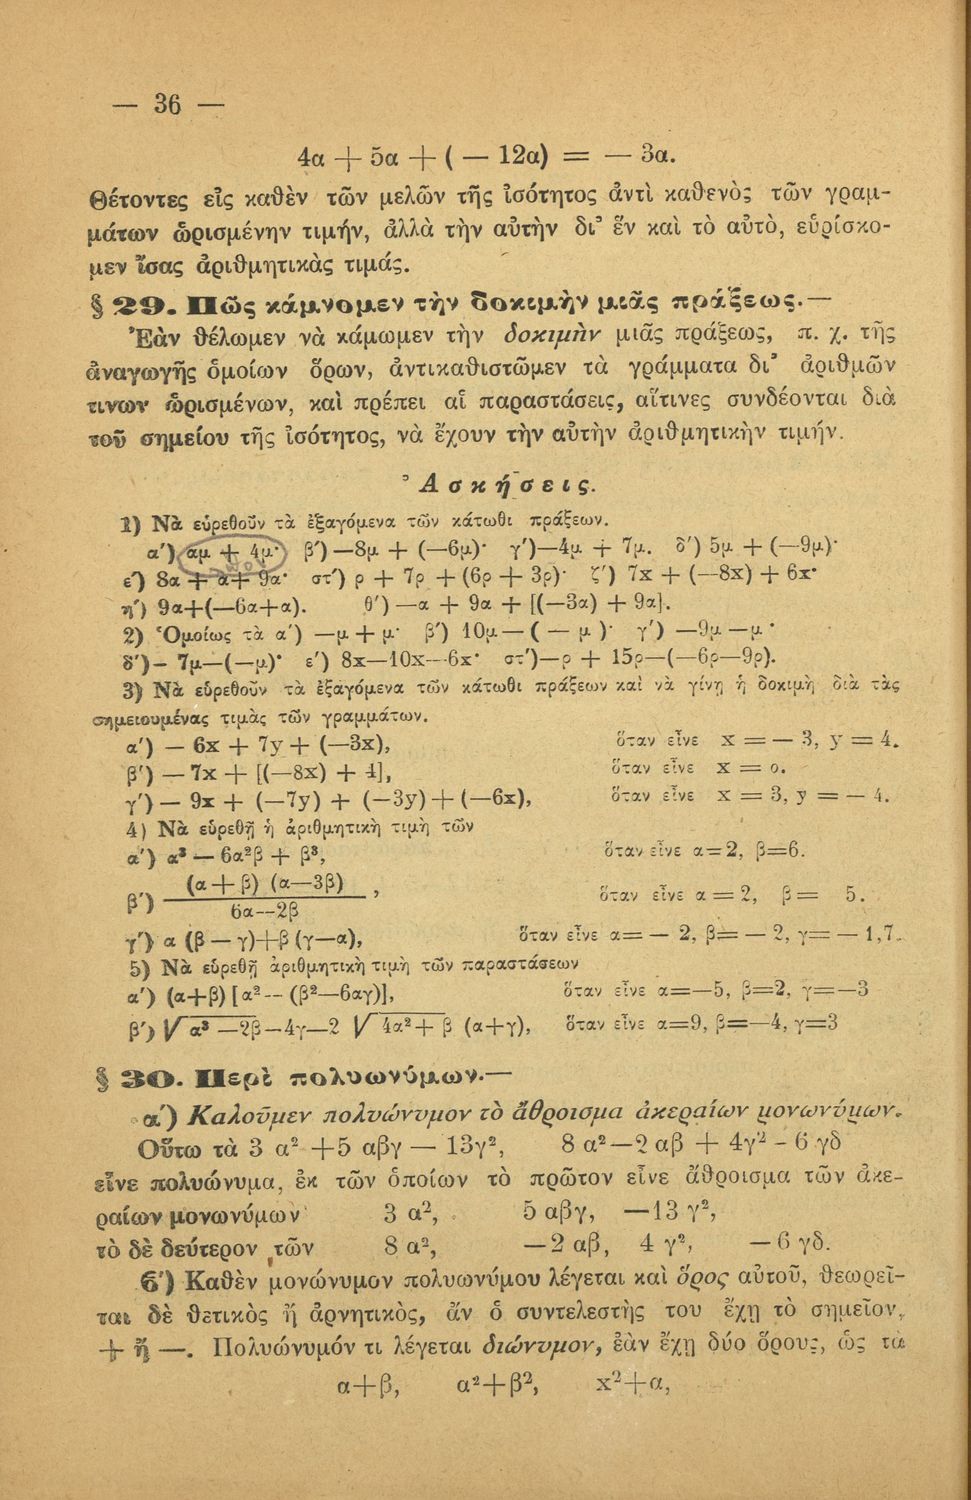 — 36 —
4α + 5α + ( — 12α) = — 3α.
Θέτοντες εἰς καθὲν τῶν μελῶν τῆς ἰσότητος ἀντὶ καθενὸς τῶν γραμ-
μάτων ὡρισμένην τιμήν, ἀλλὰ τὴν αὐτὴν δι' ἓν καὶ τὸ αὐτὸ, εὑρίσκο-
μεν ἴσας ἀριθμητικὰς τιμάς.
§ 29. Πῶς κάμνομεν τὴν δοκιμὴν μιᾶς πράξεως.—
Ἐὰν θέλωμεν νὰ κάμωμεν τὴν δοκιμὴν μιᾶς πράξεως, π. χ. τῆς
ἀναγωγῆς ὁμοίων ὅρων, ἀντικαθιστῶμεν τὰ γράμματα δι' ἀριθμῶν
τινων ὡρισμένων, καὶ πρέπει αἱ παραστάσεις, αἵτινες συνδέονται διὰ
τοῦ σημείου τῆς ἰσότητος, νὰ ἔχουν τὴν αὐτὴν ἀριθμητικὴν τιμήν.
Ἀσκήσεις.
1) Νὰ εὑρεθοῦν τὰ ἐξαγόμενα τῶν κάτωθι πράξεων.
α') αμ + 4μ· β')—8μ + (—6μ)· γ')—4μ + 7μ. δ') 5μ + (—9μ)·
ε') 8α + α + 9α· στ') ρ + 7ρ + (6ρ + 3ρ)· ζ') 7x + (—8x) + 6x·
η') 9α+(—6α+α). θ') —α + 9α + [(—3α) + 9α].
2) Ὁμοίως τὰ α') —μ + μ· β') 10μ — ( — μ )· γ') —9μ — μ·
δ')— 7μ—(—μ)· ε') 8x—10x—6x· στ')—ρ + 15ρ—(—6ρ—9ρ).
3) Νὰ εὑρεθοῦν τὰ ἐξαγόμενα τῶν κάτωθι πράξεων καὶ νὰ γίνῃ ἡ δοκιμὴ διὰ τὰς
σημειουμένας τιμὰς τῶν γραμμάτων.
α') — 6x + 7y + (—3x), ὅταν εἶνε x = — 3, y = 4.
β') — 7x + [(—8x) + 4], ὅταν εἶνε x = 0.
γ') — 9x + (—7y) + (—3y) + (—6x), ὅταν εἶνε x = 3, y = — 4.
4) Νὰ εὑρεθῇ ἡ ἀριθμητικὴ τιμὴ τῶν
α') α³ — 6α²β + β³, ὅταν εἶνε α = 2, β=6.
β') (α + β) (α—3β) / 6α—2β , ὅταν εἶνε α = 2, β = 5.
γ') α (β — γ)+β (γ—α), ὅταν εἶνε α= — 2, β= — 2, γ= — 1,7.
5) Νὰ εὑρεθῇ ἀριθμητικὴ τιμὴ τῶν παραστάσεων
α') (α+β) [α²— (β²—6αγ)], ὅταν εἶνε α=—5, β=2, γ=—3
β') √α³ —2β—4γ—2 √4α²+ β (α+γ), ὅταν εἶνε α=9, β=—4, γ=3
§ 30. Περὶ πολυωνύμων.—
α') Καλοῦμεν πολυώνυμον τὸ ἄθροισμα ἀκεραίων μονωνύμων.
Οὕτω τὰ 3 α² +5 αβγ — 13γ², 8 α²—2 αβ + 4γ² - 6 γδ
εἶνε πολυώνυμα, ἐκ τῶν ὁποίων τὸ πρῶτον εἶνε ἄθροισμα τῶν ἀκε-
ραίων μονωνύμων 3 α², 5 αβγ, —13 γ²,
τὸ δὲ δεύτερον τῶν 8 α², —2 αβ, 4 γ², — 6 γδ.
6') Καθὲν μονώνυμον πολυωνύμου λέγεται καὶ ὅρος αὐτοῦ, θεωρεῖ-
ται δὲ θετικὸς ἢ ἀρνητικὸς, ἂν ὁ συντελεστής του ἔχῃ τὸ σημεῖον,
+ ἢ —. Πολυώνυμόν τι λέγεται διώνυμον, ἐὰν ἔχῃ δύο ὅρους, ὡς τὰ
α+β, α²+β², x²+α,